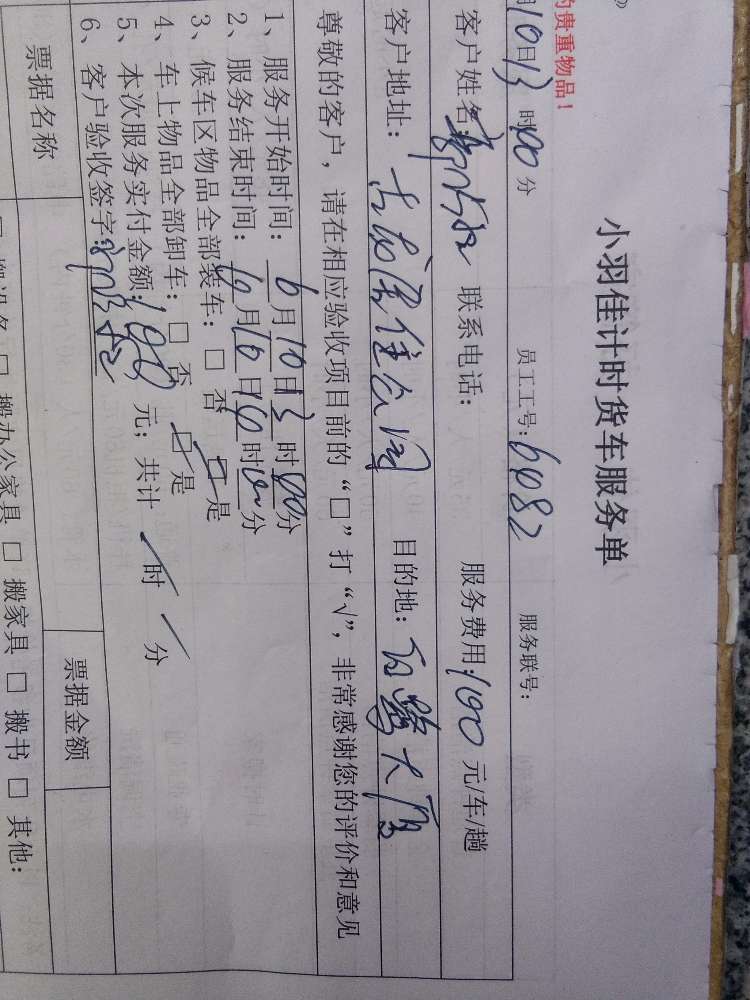 》
的贵重物品！
小羽佳计时货车服务单
月10日13时00分 员工工号：6082 服务联号：
客户姓名： 联系电话： 服务费用：190元/车/趟
客户地址： 目的地：白鹭大厦
尊敬的客户，请在相应验收项目前的“□”打“√”，非常感谢您的评价和意见
1、服务开始时间：6月10日13时00分
2、服务结束时间：6月10日14时00分
3、候车区物品全部装车：□ 否 ☑ 是
4、车上物品全部卸车：□ 否 ☑ 是
5、本次服务实付金额：190元；共计 / 时 / 分
6、客户验收签字：
票据名称 票据金额
□ 搬办公家具 □ 搬家具 □ 搬书 □ 其他：